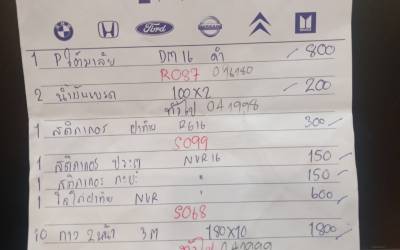 Ford
1 Pใต้มาลัย DM16 ดำ 800
R037 046180
2 น้ำมันเบรค 100x2 200
ทั่วไป 041998
1 สติกเกอร์ ฝาท้าย D616 300
S099
1 สติกเกอร์ ประตู NVR16 150
1 สติกเกอร์ กะบะ " 150
1 โลโก้ฝาท้าย NVR " 600
S068
10 กาว 2 หน้า 3M 180x10 1800
ทั่วไป 041999